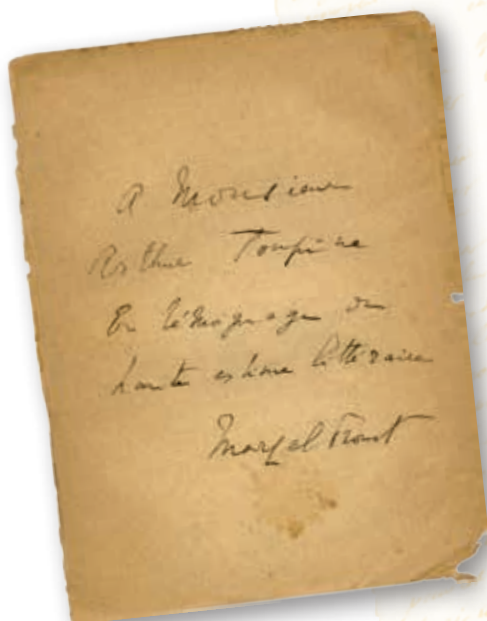 A Monsieur
Arthur Toupine
En témoignage de
haute estime littéraire
Marcel Proust